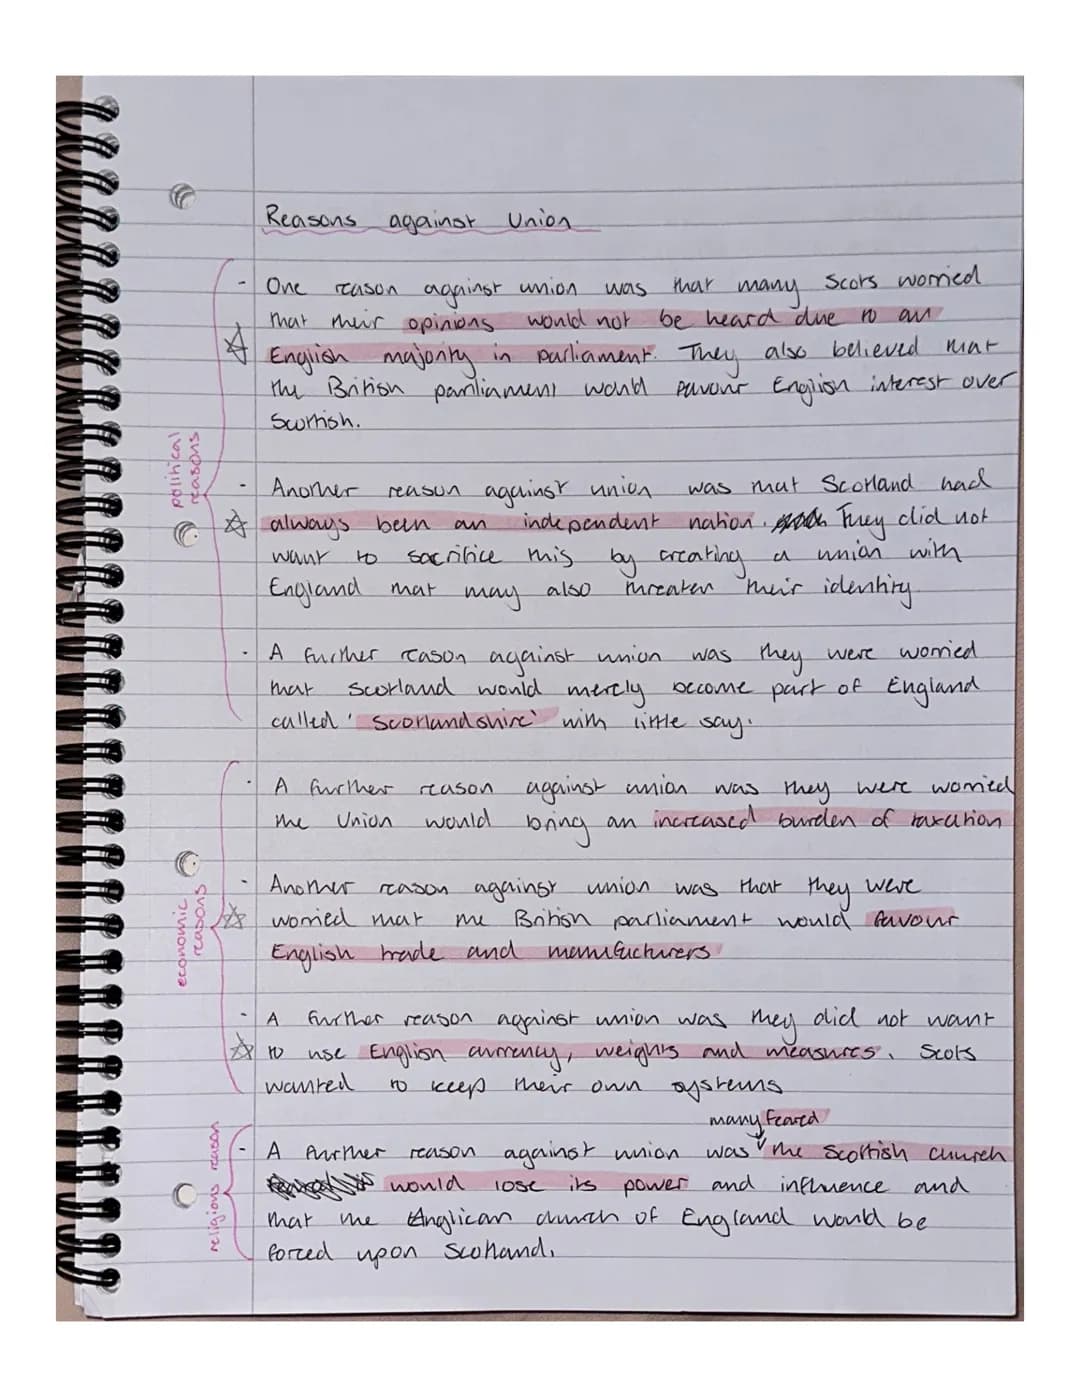 Reasons against Union
- One reason against union was that many Scots worried
that their opinions would not be heard due to an
English majority in parliament. They also believed that
the British parliament would favour English interest over
Scottish.
political
reasons
- Another reason against union was that Scotland had
always been an independent nation. They did not
want to sacrifice this by creating a union with
England that may also threaten their identity
- A further reason against union was they were worried
that Scotland would merely become part of England
called 'Scotlandshire' with little say.
- A further reason against union was they were worried
the Union would bring an increased burden of taxation
economic
reasons
- Another reason against union was that they were
worried that the British parliament would favour
English trade and manufacturers
- A further reason against union was they did not want
to use English currency, weights and measures. Scots
wanted to keep their own systems
many feared
religious reason
- A further reason against union was the Scottish church
would lose its power and influence and
that the Anglican church of England would be
forced upon Scotland.